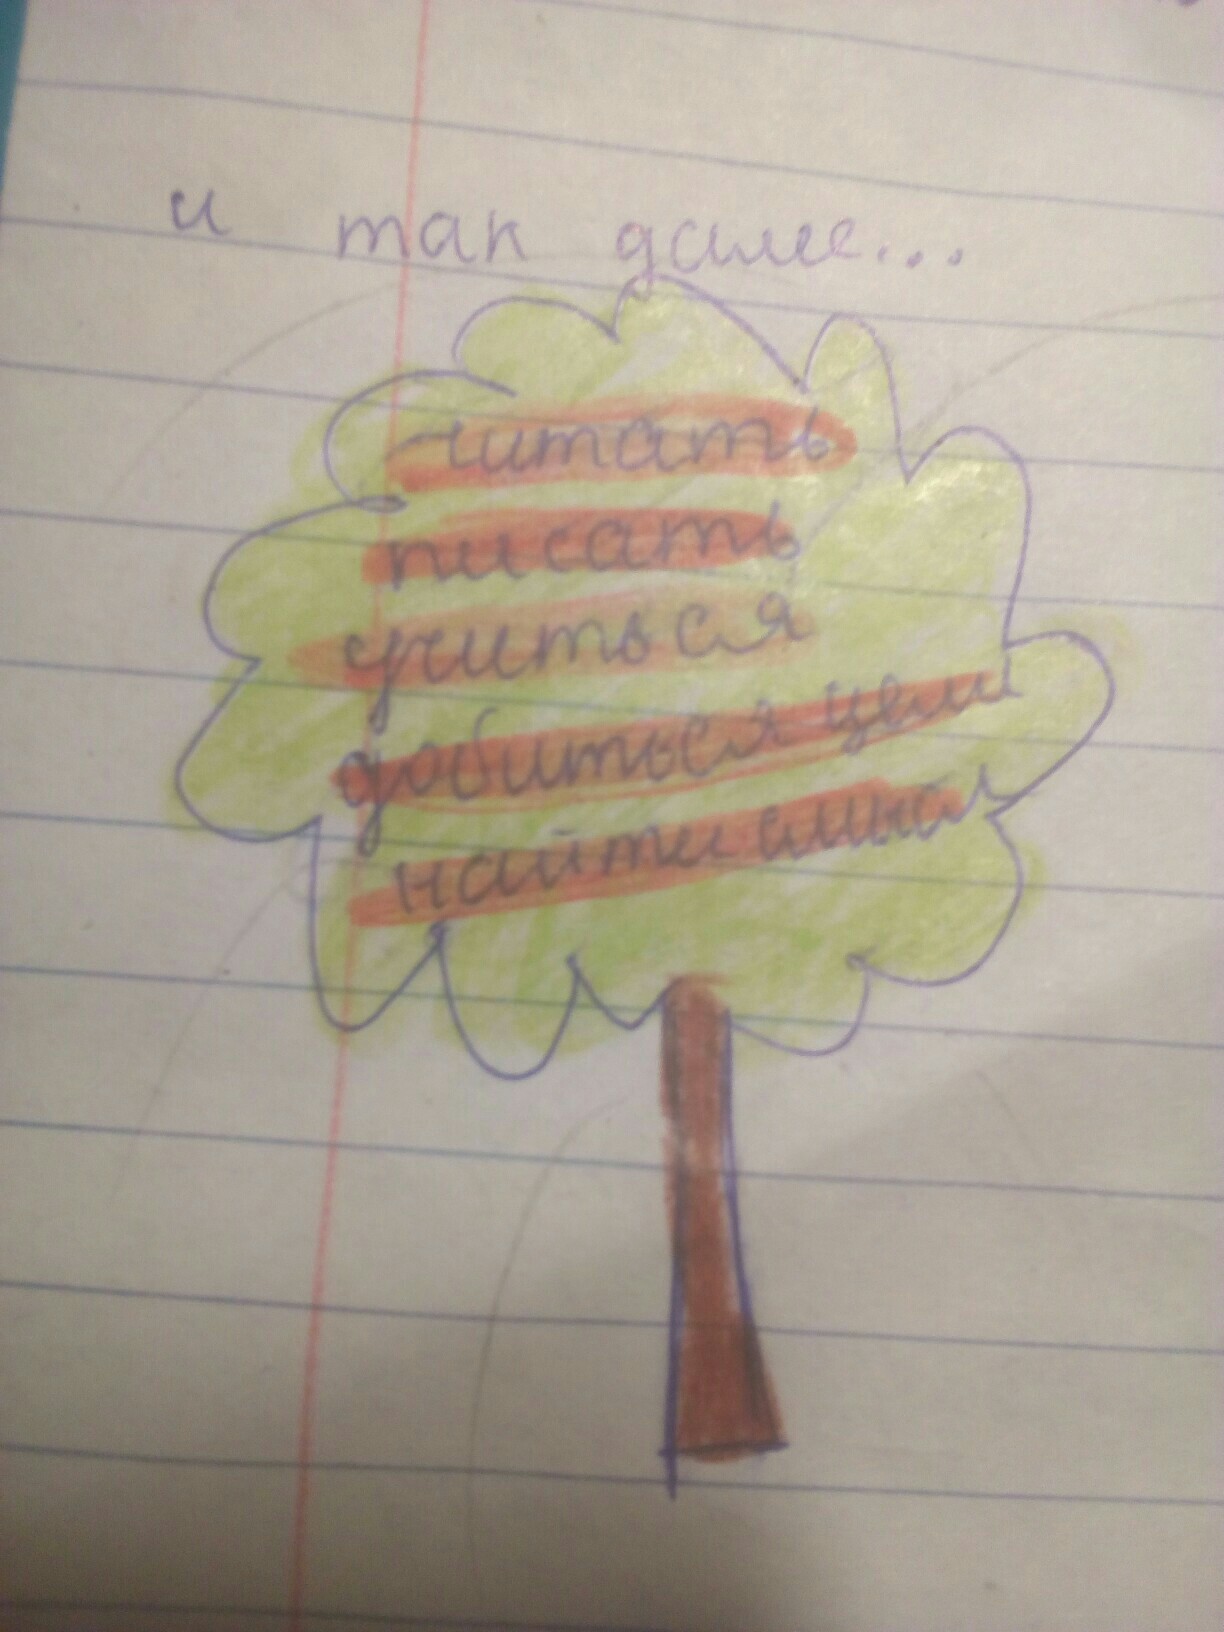 и так далее...
читать
писать
учиться
добиться цели
найти смысл